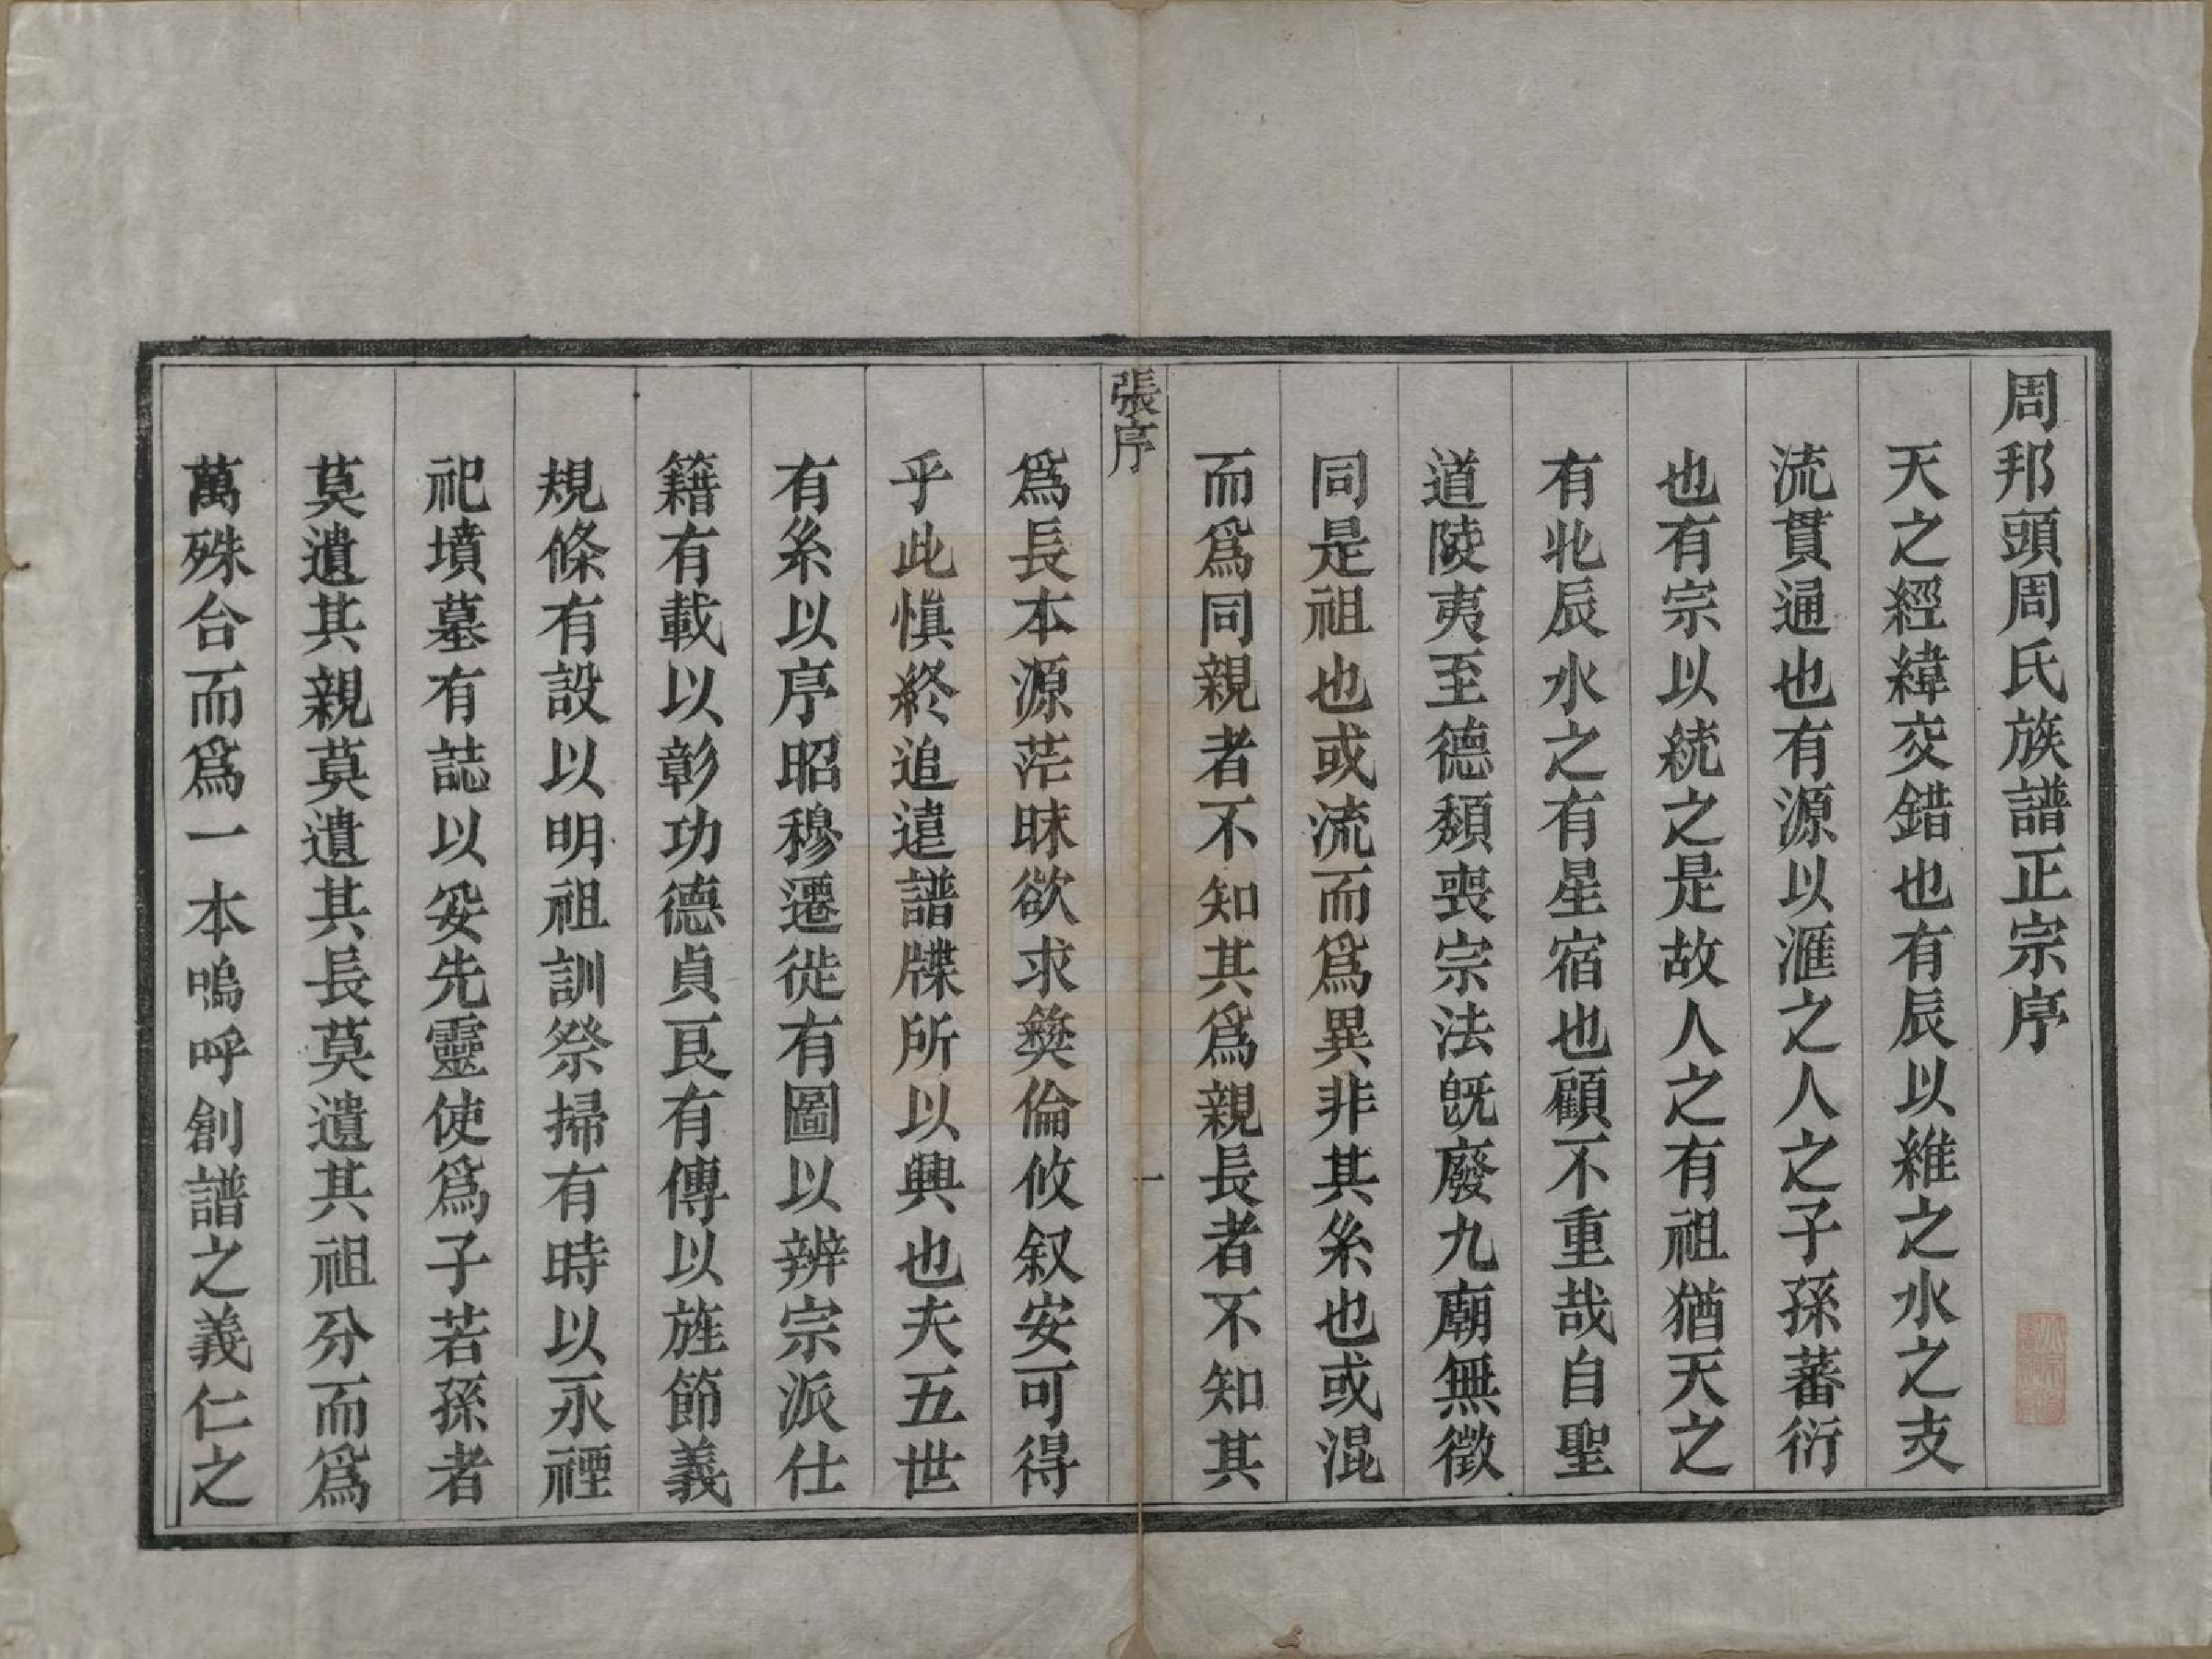 周邦頭周氏族譜正宗序
天之經緯交錯也有辰以維之水之支
流貫通也有源以滙之人之子孫蕃衍
也有宗以統之是故人之有祖猶天之
有北辰水之有星宿也顧不重哉自聖
道陵夷至德頹喪宗法旣廢九廟無徵
同是祖也或流而爲異非其系也或混
而爲同親者不知其爲親長者不知其
張序
一
爲長本源茫昧欲求彛倫攸叙安可得
乎此愼終追遠譜牒所以興也夫五世
有系以序昭穆遷徙有圖以辨宗派仕
籍有載以彰功德貞良有傳以旌節義
規條有設以明祖訓祭掃有時以永禋
祀墳墓有誌以妥先靈使爲子若孫者
莫遺其親莫遺其長莫遺其祖分而爲
萬殊合而爲一本嗚呼創譜之義仁之